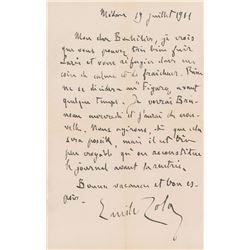 Médan 19 juillet 1881
Mon cher          , je crois
que vous pouvez très bien fuir
Paris et vous réfugier dans un
coin de calme et de fraîcheur. Rien
ne se décidera au "Figaro" avant
quelque temps. Je verrai
mercredi et j'aurai de nou-
velle. Nous agirons, dès que cela
sera possible, mais il est bien
peu croyable qu'on reconstitue
le journal avant la rentrée.
Bonnes vacances et bon es-
poir.
Emile Zola